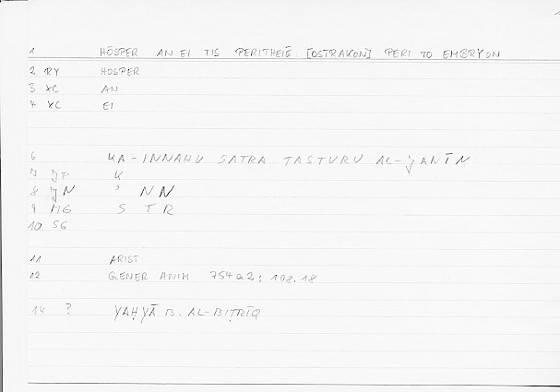 1 HŌSPER AN EI TIS PERITHEIĒ [OSTRAKON] PERI TO EMBRYON
2 RY HOSPER
3 XC AN
4 XC EI
6 KA-INNAHU SATRA TASTURU AL-ǦANĪN
7 K
8 ǦN ʾ NN
9 MG S T R
10 SG
11 ARIST
12 GENER ANIM 754a2; 108.18
14 ? YAḤYĀ B. AL-BIṬRĪQ